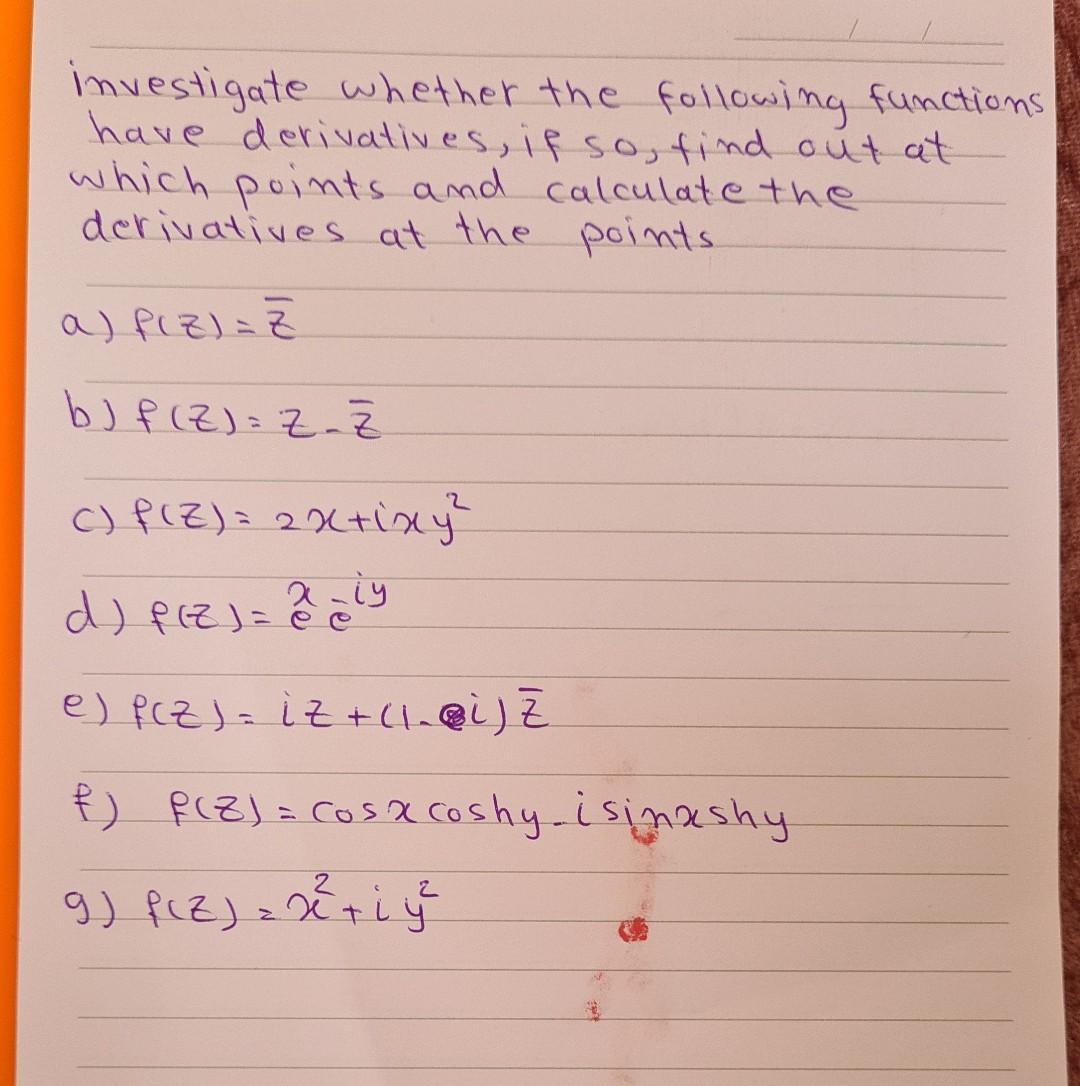 investigate whether the following functions
have derivatives, if so, find out at
which points and calculate the
derivatives at the points
a) f(z) = z̅
b) f(z) = z - z̅
c) f(z) = 2x + ixy²
d) f(z) = eˣ e⁻ⁱʸ
e) f(z) = iz + (1 - i) z̅
f) f(z) = cos x coshy - i sinx shy
g) f(z) = x² + i y²